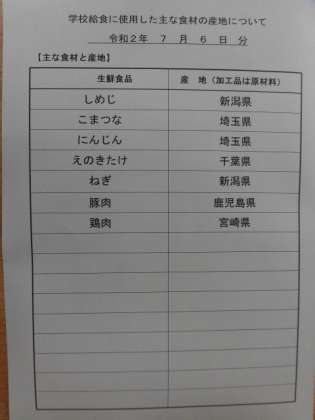 学校給食に使用した主な食材の産地について
令和２年　７　月　６　日　分
【主な食材と産地】
生鮮食品　産　地（加工品は原材料）
しめじ　新潟県
こまつな　埼玉県
にんじん　埼玉県
えのきたけ　千葉県
ねぎ　新潟県
豚肉　鹿児島県
鶏肉　宮崎県